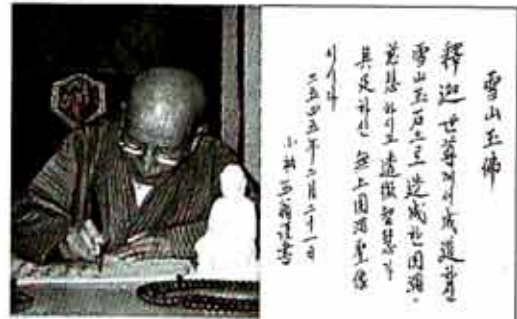 雪山玉佛
釋迦世尊께서 成道하신
雪山玉石으로 造成한 圓滿
慈悲하시고 透徹智慧가
具足하신 無上圓滿聖像
이시다
二五四五年二月二十一日
小林 西翁謹書